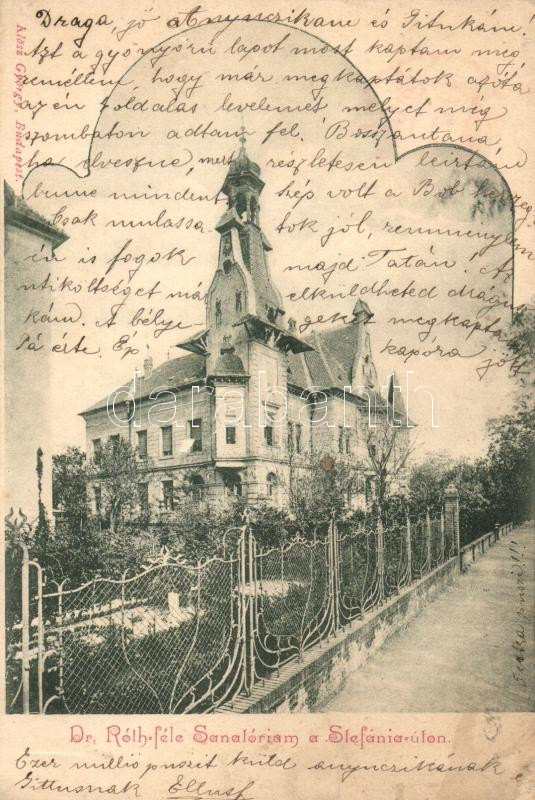 Draga, jó Anynczikane és Gituskám!
Azt a gyönyörű lapot most kaptam meg
remélem, hogy már megkaptátok azóta
az én oldalas levelemet melyet még
szombaton adtam fel. Bosszantana,
ha elveszne, mert részletesen leirtam
benne mindent szép volt a Bob
Csak mulassatok jól, remmenylem
én is fogok majd Tatán! Az
utiköltséget má elküldheted drágu
kám. A bélye geket megkapta
Pá érte. Ép kapora jött
Klösz György, Budapest.
darabanth
Dr. Róth-féle Sanatóriam a Stefánia-úton.
Ezer millió puszit küld anynczikának
Gittusnak Ellusf